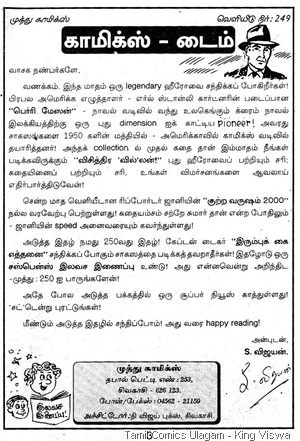 முத்து காமிக்ஸ் வெளியீடு நிர்: 249
காமிக்ஸ் - டைம்
வாசக நண்பர்களே,
வணக்கம். இந்த மாதம் ஒரு legendary ஹீரோவை சந்திக்கப் போகிறீர்கள்!
பிரபல அமெரிக்க எழுத்தாளர் - எர்ல் ஸ்டான்லி கார்டனரின் படைப்பான
"பெர்ரி மேஸன்" - நாவல் வடிவில் வந்து உலகெங்கும் க்ரைம் நாவல்
இலக்கியத்திற்கு ஒரு புது dimension ஐக் காட்டிய pioneer! அவரது
சாகஸங்களை 1950 களின் மத்தியில் - அமெரிக்காவில் காமிக்ஸ் வடிவில்
தயாரித்தனர்! அந்தக் collection ல் முதல் கதை தான் இம்மாதம் நீங்கள்
படிக்கவிருக்கும் "விசித்திர 'வில்'லன்!" புது ஹீரோவைப் பற்றியும் சரி;
கதையினைப் பற்றியும் சரி, உங்கள் விமர்சனங்களை ஆவலாய்
எதிர்பார்த்திடுவேன்!
சென்ற மாத வெளியீடான ரிப்போர்டர் ஜானியின் "குற்ற வருஷம் 2000"
நல்ல வரவேற்பு பெற்றுள்ளது! கதையம்சம் சற்றே சுமார் தான் என்ற போதிலும்
- ஜானியின் speed அனைவரையும் கவர்ந்துள்ளது!
அடுத்த இதழ் நமது 250வது இதழ்! கேப்டன் டைகர் "இரும்புக் கை
எத்தனை" சந்திக்கப் போகும் சாகஸத்தை படிக்கத் தவறாதீர்கள்! இதழோடு ஒரு
சஸ்பென்ஸ் இலவச இணைப்பு உண்டு! அது என்னவென்று அறிந்திட
- முத்து : 250 ஐ பாருங்களேன்!
அதே போல அடுத்த பக்கத்தில் ஒரு சூப்பர் நியூஸ் காத்துள்ளது!
'சட்'டென்று புரட்டுங்கள்!
மீண்டும் அடுத்த இதழில் சந்திப்போம்! அது வரை happy reading!
அன்புடன்,
S. விஜயன்.
முத்து காமிக்ஸ்
தபால் பெட்டி எண் : 253,
சிவகாசி - 626 123.
போன்/பேக்ஸ் : 04562 - 21159
அச்சிட்டோர் : தி விஜய் புக்ஸ், சிவகாசி.
இலவச
இணைப்பு!
3
Tamil Comics Ulagam - King Viswa